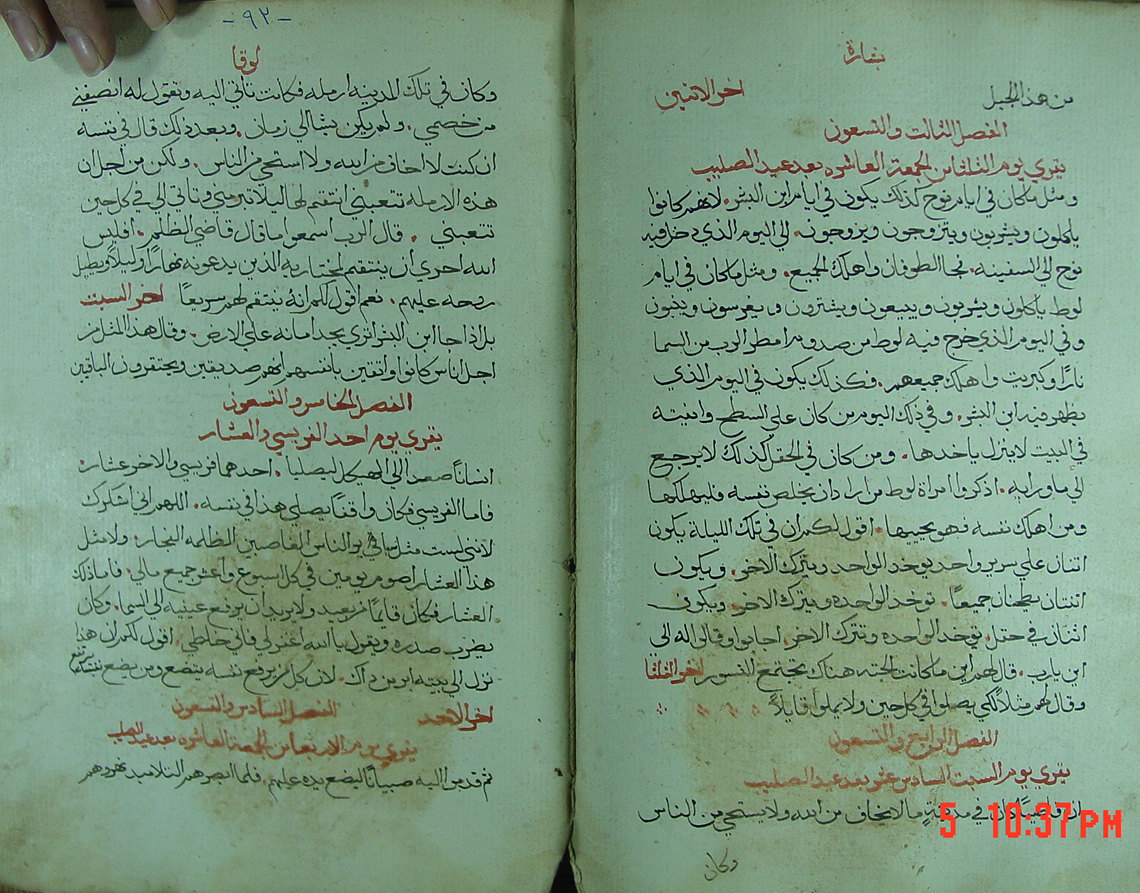 بشارة
من هذا الجبل اخر الاثنين
الفصل الثالث والتسعون
يقري يوم الثلثا من الجمعة العاشره بعد عيد الصليب
ومثل ما كان في ايام نوح كذلك يكون في ايام ابن البشر. لانهم كانوا
ياكلون ويشربون ويتزوجون ويزوجون. الي اليوم الذي دخل فيه
نوح الي السفينه. فجا الطوفان واهلك الجميع. ومثل ما كان في ايام
لوط ياكلون ويشربون ويبيعون ويشترون ويغرسون ويبنون
وفي اليوم الذي خرج فيه لوط من صدوم امطر الرب من السما
نارًا وكبريت واهلك جميعهم. فكذلك يكون في اليوم الذي
يظهر فيه ابن البشر. وفي ذلك اليوم من كان علي السطح وانيته
في البيت لا ينزل ياخدها. ومن كان في الحقل كذلك لا يرجع
الي ما ورايه. اذكروا امراة لوط من اراد ان يخلص نفسه فليهلكها
ومن اهلك نفسه فهو يحييها. اقول لكم ان في تلك الليلة يكون
اتنان علي سرير واحد يوخد الواحد ويترك الاخر. ويكون
اتنتان يطحنان جميعًا. توخد الواحده ويترك الاخر. ويكون
اثنان في حقل. يوخد الواحد وتترك الاخر. اجابوا وقالوا له الي
اين يارب. قال لهم اين ما كانت الجته هناك تجتمع النسور اخر الثلثا
وقال لهم مثلًا لكي يصلوا في كل حين ولا يملوا قايلًا
الفصل الرابع والتسعون
يقري يوم السبت السادس عشر بعد عيد الصليب
ان قاضيًا كان في مدينةٍ ما لا يخاف من الله ولا يستحي من الناس
وكان
-٩٢-
لوقا
وكان في تلك المدينه ارمله فكانت تاتي اليه وتقول له انصفني
من خصمي. ولم يكن يشا الي زمان. وبعد ذلك قال في نفسه
ان كنت لا اخاف من الله ولا استحي من الناس. ولكن من اجل ان
هذه الارمله تتعبني انتقم لها ليلا تبرمني وتاتي الي في كل حين
تتعبني. قال الرب اسمعوا ما قال قاضي الظلم. افليس
الله احري ان ينتقم لمختاريه الذين يدعونه نهارًا وليلًا ويطيل
روحه عليهم. نعم اقول لكم انه ينتقم لهم سريعًا اخر السبت
بل اذا جا ابن البشر اتري يجد امانه علي الارض. وقال هذا المثل من
اجل اناس كانوا واثقين بانفسهم انهم صديقين ويحتقرون الباقين
الفصل الخامس والتسعون
يقري يوم احد الفريسي والعشار
انسانان صعدا الي الهيكل ليصليا. احدهما فريسي والاخر عشار.
فاما الفريسي فكان واقفًا يصلي هذا في نفسه. اللهم اني اشكرك
لانني لست مثل باقي الناس الغاصبين الظلمه الفجار. ولا مثل
هذا العشار اصوم يومين في كل اسبوع واعشر جميع مالي. فاما ذلك
العشار فكان قايمًا من بعيد ولا يريد ان يرفع عينيه الي السما. وكان
يضرب صدره ويقول يا الله اغفر لي فاني خاطي. اقول لكم ان هذا
نزل الي بيته ابر من ذاك. لان كل من يرفع نفسه يتضع ومن يضع نفسه يرتفع
اخر الاحد الفصل السادس والتسعون
يقري يوم الاربعا من الجمعة العاشره بعد عيد الصليب
ثم قدموا اليه صبيانًا ليضع يده عليهم. فلما ابصرهم التلاميد نهروهم
5 10:37 PM